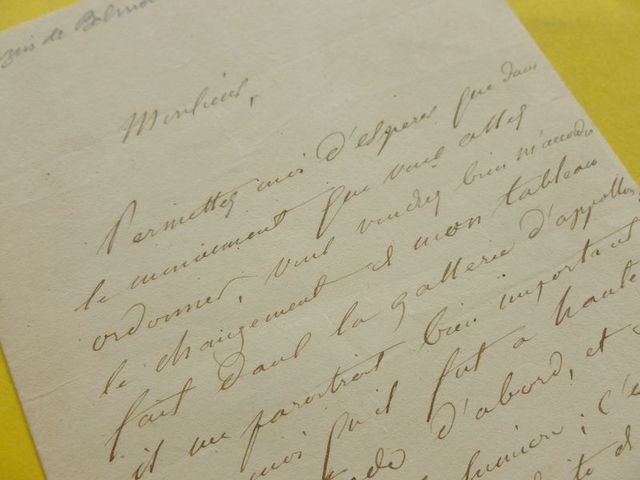 de Balmon
Monsieur,
Permettez moi d'esperer que dans
le mouvement que vous allez
ordonner, vous voudrez bien m'accorder
le changement de mon tableau
fait dans la gallerie d'appollon,
il me paroitroit bien important
moi qu'il fut a haute
d'abord, et
lumiere ; c'e